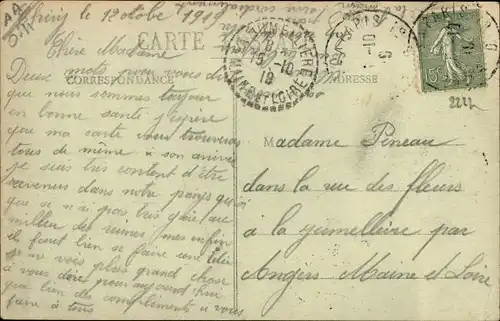 le 12 octobre 1919
CARTE
Chère Madame
CORRESPONDANCE
ADRESSE
Deux mots pour vous dire
que nous sommes toujour
en bonne santé j'espère
que ma carte vous trouveras
tous de même à son arrivée
je suis très content d'être
revenus dans notre pays quoi
que se n'ai pas très gai au
milieu des ruines mes enfin
il faut bien se faire une idée
je ne vois plus grand chose
à vous dire pour aujourd'hui
que bien des compliments à vous
faire à tous
15-10
19
MAINE-ET-LOIRE
MADAME Pineau
dans la rue des fleurs
à la jumellière par
Angers Maine et Loire